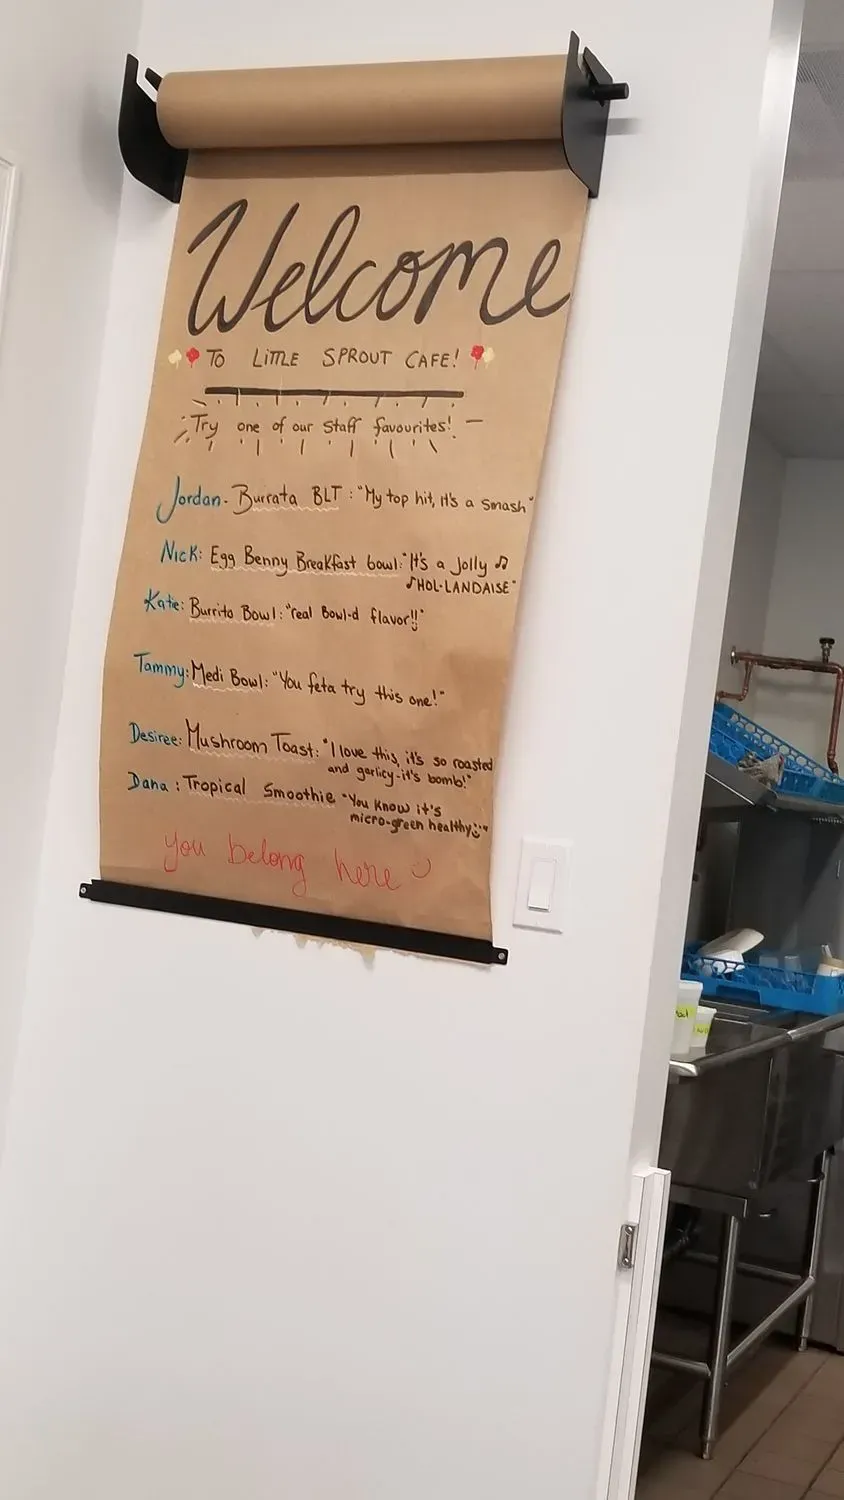 Welcome
TO LITTLE SPROUT CAFE!
Try one of our Staff favourites!
Jordan - Burrata BLT : "My top hit, it's a smash"
Nick: Egg Benny Breakfast bowl: "It's a Jolly ♫
♫HOL-LANDAISE"
Katie: Burrito Bowl: "real Bowl-d flavor!!"
Tammy: Medi Bowl: "You feta try this one!"
Desiree: Mushroom Toast: "I love this, it's so roasted
and garlicy-it's bomb!"
Dana : Tropical Smoothie "You know it's
micro-green healthy :)"
you belong here